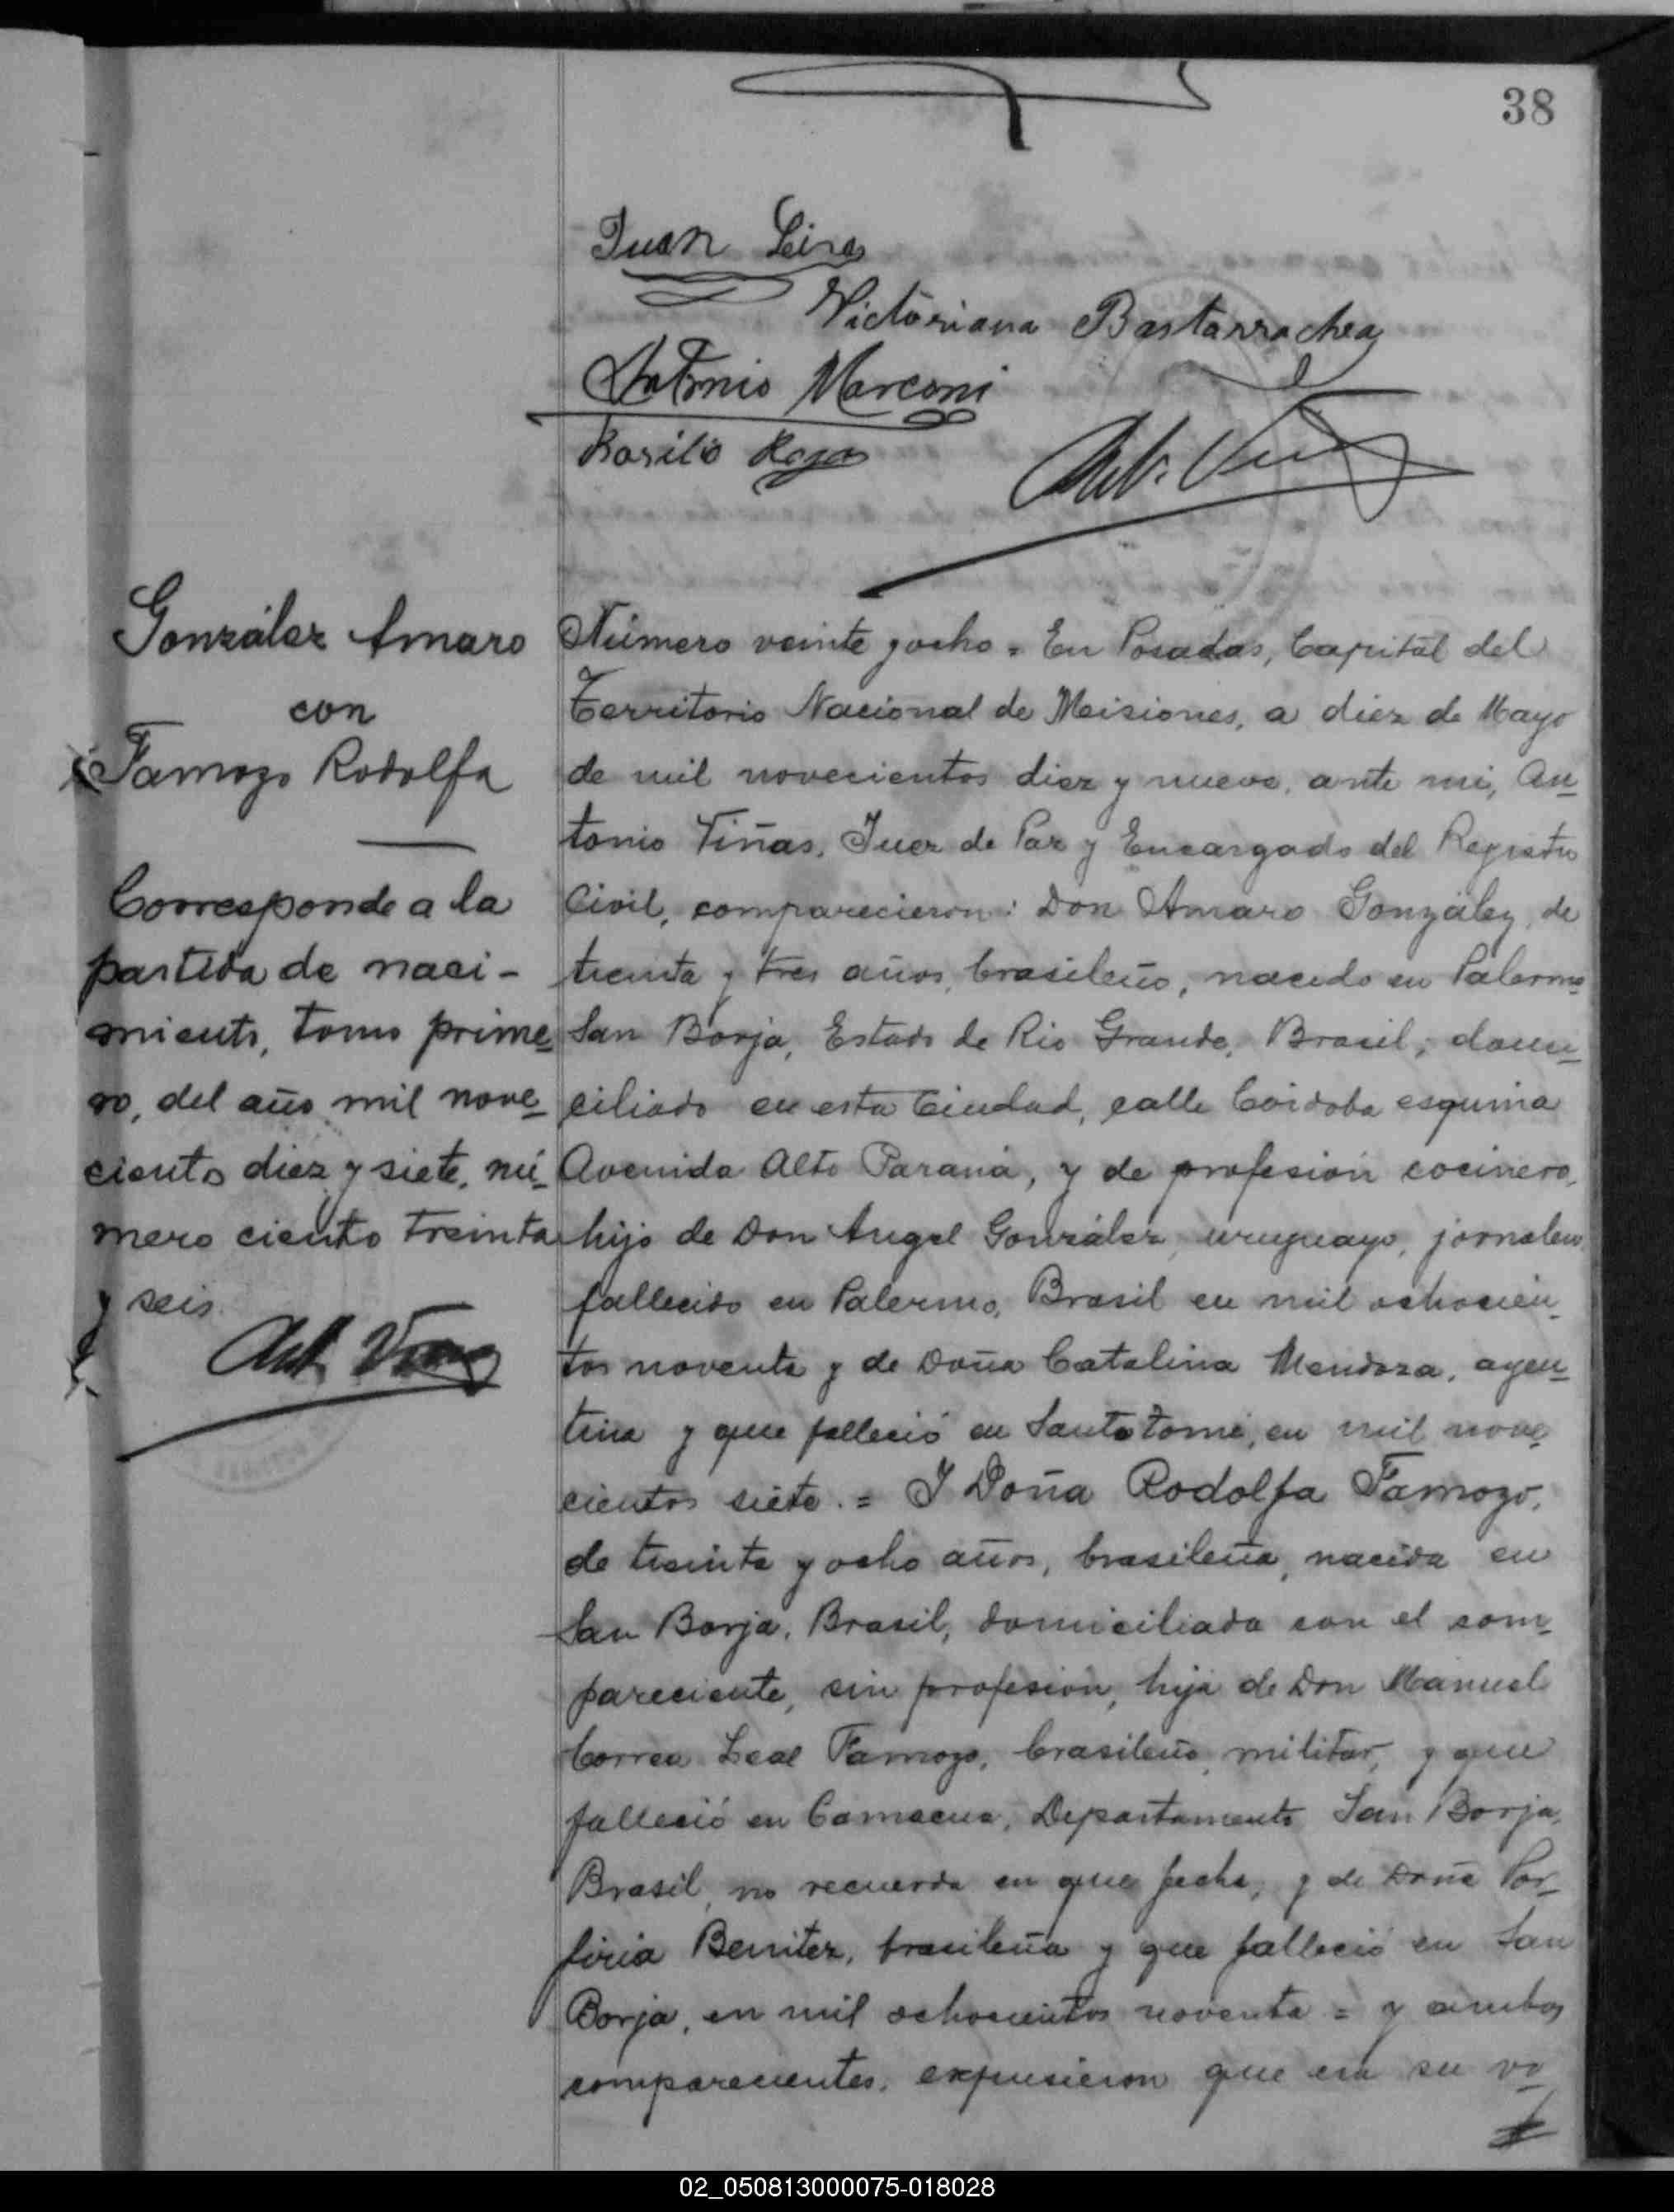 38
Juan Leiras
Victoriana Bastarrachea
Antonio Marconi
Basilio Rojas
González Amaro
con
Famozo Rodolfa
Corresponde a la
partida de naci-
miento, tomo prime-
ro, del año mil nove-
cientos diez y siete, nú-
mero ciento treinta
y seis.
Número veinte y ocho = En Posadas, Capital del
Territorio Nacional de Misiones, a diez de Mayo
de mil novecientos diez y nueve, ante mi, An-
tonio Viñas, Juez de Paz y Encargado del Registro
Civil, comparecieron: Don Amaro González, de
treinta y tres años, brasileño, nacido en Palermo
San Borja, Estado de Rio Grande, Brasil; domi-
ciliado en esta Ciudad, calle Córdoba esquina
Avenida Alto Paraná, y de profesión cocinero,
hijo de Don Angel González, uruguayo, jornalero,
fallecido en Palermo, Brasil en mil ochocien-
tos noventa y de Doña Catalina Mendoza, argen-
tina y que falleció en Santo tomé, en mil nove-
cientos siete. = Y Doña Rodolfa Famozo,
de treinta y ocho años, brasileña, nacida en
San Borja, Brasil, domiciliada con el com-
pareciente, sin profesión, hija de Don Manuel
Correa Leal Famozo, brasileño, militar, y que
falleció en Camacua, Departamento San Borja,
Brasil, no recuerda en que fecha, y de Doña Por-
firia Benitez, brasileña y que falleció en San
Borja, en mil ochocientos noventa = y ambos
comparecientes, expusieron que era su vo-
02_050813000075-018028